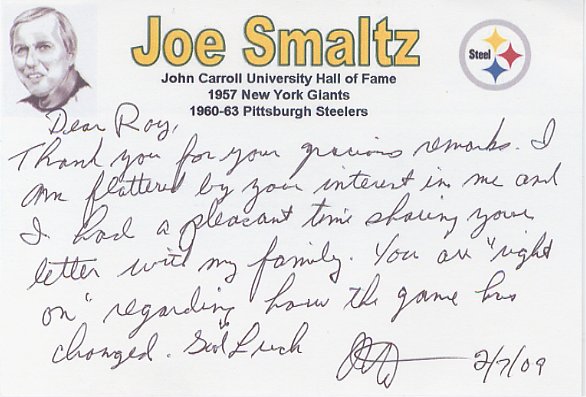 Joe Smaltz
Steel
John Carroll University Hall of Fame
1957 New York Giants
1960-63 Pittsburgh Steelers
Dear Roy,
Thank you for your gracious remarks. I
am flattered by your interest in me and
I had a pleasant time sharing your
letter with my family. You are "right
on" regarding how the game has
changed. Good Luck
2/7/09